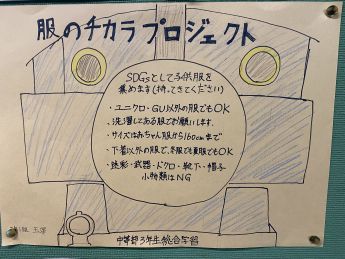 服のチカラプロジェクト
SDGsとして子供服を
集めます(持ってきてください)
・ユニクロ・GU以外の服でもOK
・洗濯してある服でお願いします。
・サイズはあちゃん服から160cmまで
・下着以外の服で、冬服でも夏服でもOK
・迷彩・武器・ドクロ・靴下・帽子
小物類はNG
中等部3年生総合学習